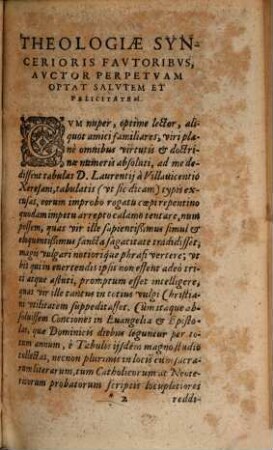 THEOLOGIÆ SYN-
CERIORIS FAVTORIBVS,
AVCTOR PERPETVAM
OPTAT SALVTEM ET
FELICITATEM.
CVM nuper, optime lector, ali-
quot amici familiares, viri pla-
nè omnibus virtutis & doctri-
næ numeris absoluti, ad me de-
dissent tabulas D. Laurentij à Villauicentio
Xeresani, tabulatis (vt sic dicam) typis ex-
cusas, rerum improbo rogatu cœpi repentino
quodam impetu arrepto calamo tentare, num
possem, quas vir ille sapientissimus simul &
eloquentissimus sancta sagacitate tradidisset,
magis vulgari notiorique phrasi vertere; vt
hi qui in euertendis ipsis non essent adeò tri-
ti atque astuti, promptum esset intelligere,
quas vir ille tantus in totius vulgi Christia-
ni vtilitatem suppeditasset. Cùm itaque ab-
soluissem Conciones in Euangelia & Episto-
las, quæ Dominicis diebus leguntur per to-
tum annum, è Tabulis ijsdem magno studio
collectas, necnon plurimis in locis cùm sacra-
rum literarum, tum Catholicorum ac Neote-
ricorum probatorum scriptis locupletiores
* 2 reddi-